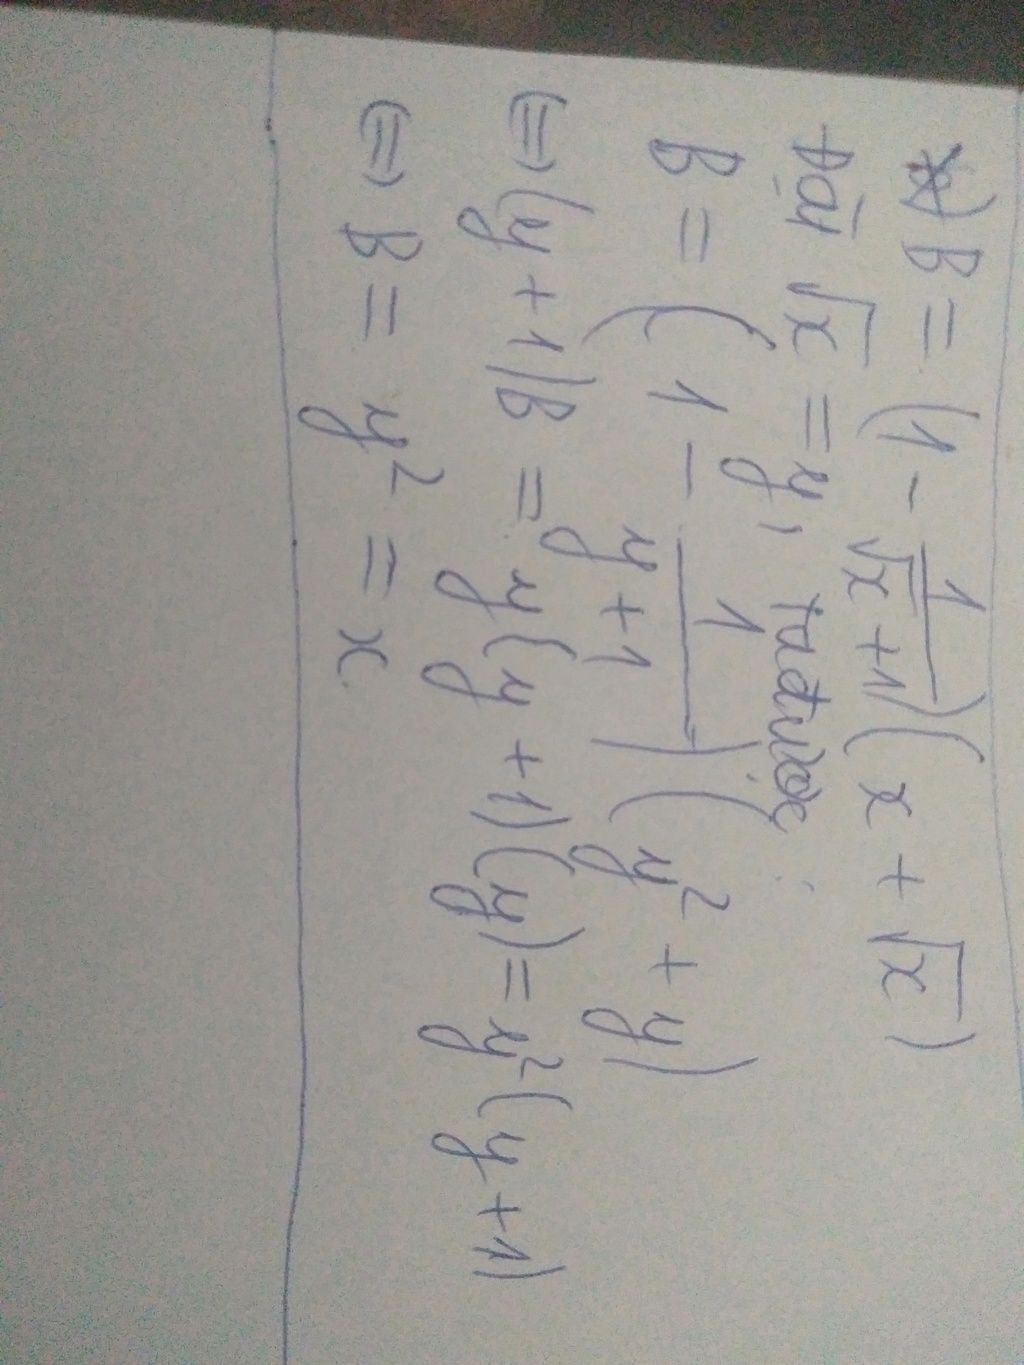 B = (1 - 1/(√x + 1))(x + √x)
Đặt √x = y, ta được:
B = (1 - 1/(y + 1))(y² + y)
⇔ (y + 1)B = y(y + 1)(y) = y²(y + 1)
⇔ B = y² = x